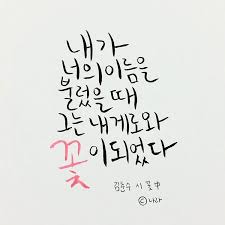 내가
너의이름을
불렀을 때
그는 내게로와
꽃이되었다
김춘수 시 꽃 中
ⓒ나라